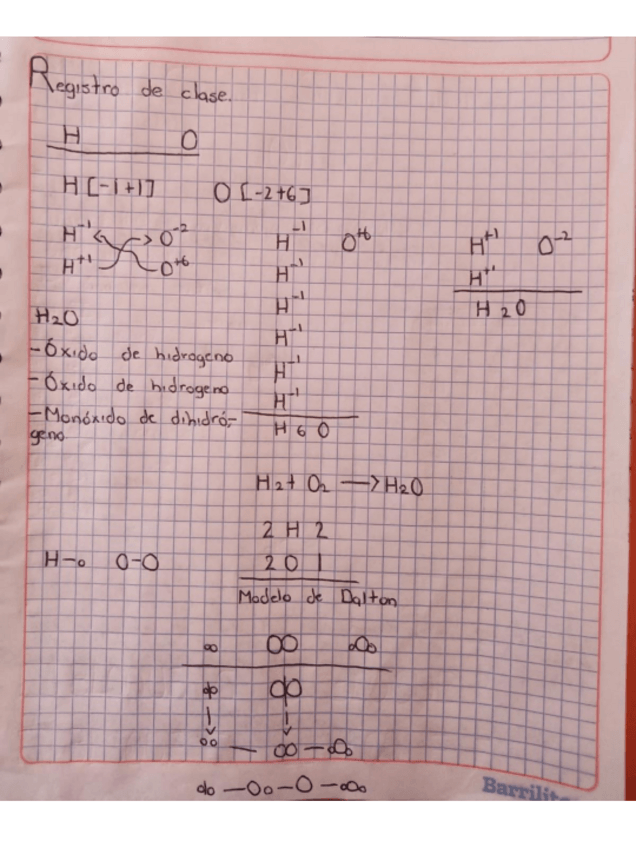 Registro de clase.
H O
H [-1+1] O [-2+6]
H⁻¹ O⁻²
H⁺¹ O⁺⁶
H₂O
-Óxido de hidrogeno
-Óxido de hidrogeno
-Monóxido de dihidró-
geno
H⁻¹ O⁺⁶
H⁻¹
H⁻¹
H⁻¹
H⁻¹
H⁻¹
H 6 O
H⁺¹ O⁻²
H⁺¹
H 2 O
H₂+ O₂ —> H₂O
2 H 2
2 O 1
H-o O-O
Modelo de Dalton